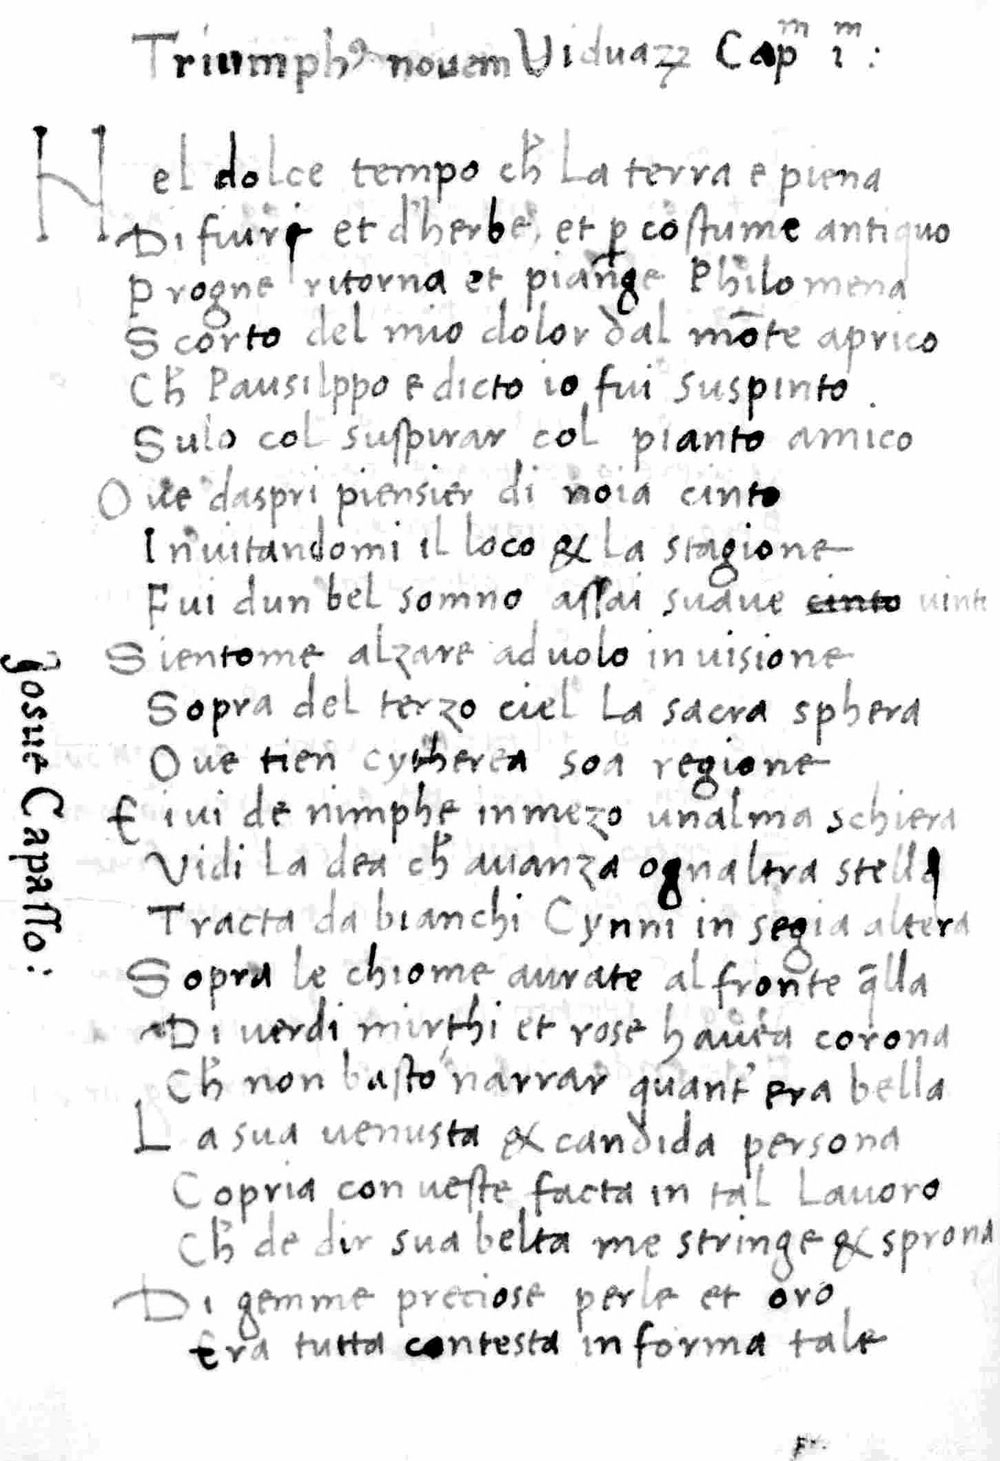 Triumphꝰ novem Viduaꝝ Capᵐ iᵐ:
Nel dolce tempo ch̄ La terra e piena
Di fiuri et d'herbe, et ꝑ costume antiquo
Progne ritorna et piange Philomena
Scorto del mio dolor dal mōte aprico
Ch̄ Pausilppo e dicto io fui suspinto
Sulo col suspirar col pianto amico
Oue daspri piensier di noia cinto
Inuitandomi il loco & la stagione
Fui dun bel somno assai suaue cinto uint
Sientome alzare ad uolo in uisione
Sopra del terzo ciel La sacra sphera
Oue tien cytherea soa regione
E iui de nimphe in mezo unalma schiera
Vidi La dea ch̄ auanza ognaltra stella
Tracta da bianchi Cynni in segia altera
Sopra le chiome aurate al fronte q̄lla
Di uerdi mirthi et rose hauea corona
Ch̄ non basto narrar quant' era bella
La sua uenusta & candida persona
Copria con ueste facta in tal Lauoro
Ch̄ de dir sua belta me stringe & sprona
Di gemme preciose perle et oro
Era tutta contesta in forma tale
Josue Capasso: